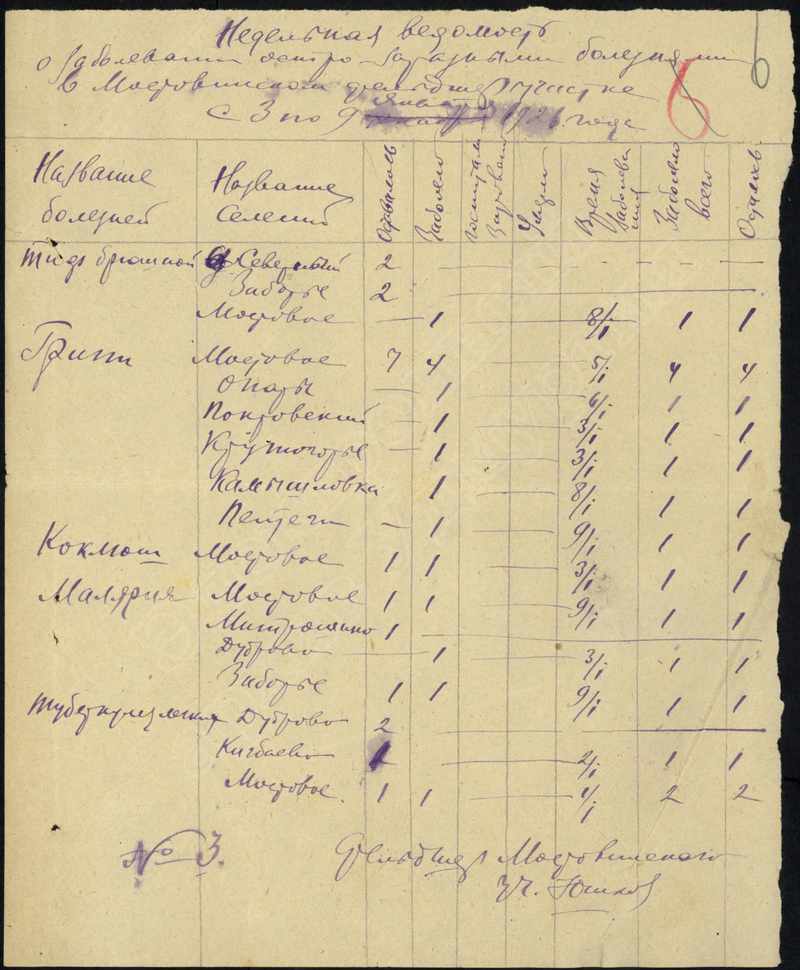 Недельная ведомость
о заболевании остро-заразными болезнями
в Мостовинском фельдшер. участке
С 3 по 9 января 1926 года
6
Название болезней Название селений Оставалось Заболело Выздоровл Умерли Время заболевания Заболело всего Осталось
Тиф брюшной д. Северный 2 — — — —
Заборье 2
Мостовое — 1 — 8/I 1 1
Грипп Мостовое 7 4 — 5/I 4 4
Опары — 1 — 6/I 1 1
Покровский — 1 — 3/I 1 1
Крутогорье — 1 — 3/I 1 1
Камышловка 1 — 8/I 1 1
— 1 — 9/I 1 1
Коклюш Мостовое 1 1 — 3/I 1 1
Малярия Мостовое 1 1 — 9/I 1 1
Митрошино 1 —
Дуброво — 1 — 3/I 1 1
Заборье 1 1 — 9/I 1 1
Туберкулез легких Дуброво 2 —
Кигбаево 1 — 2/I 1 1
Мостовое 1 1 — 1/I 2 2
№ 3. Фельдшер Мостовинского
уч. Юшков